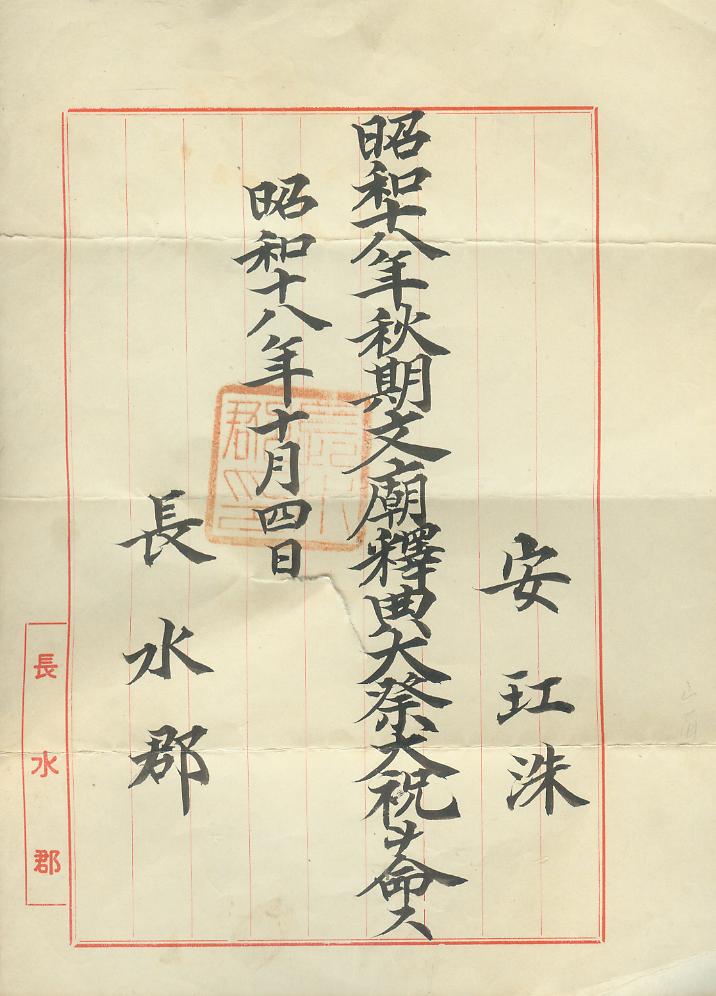 安玒洙
昭和十八年秋期文廟釋典大祭大祝ヲ命ス
昭和十八年十月四日
長水郡
長水郡印
長水郡